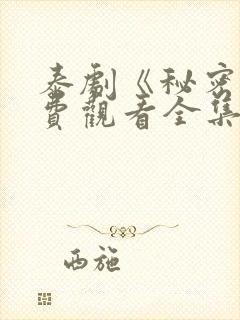 泰剧《秘密
费觀看全集
西施